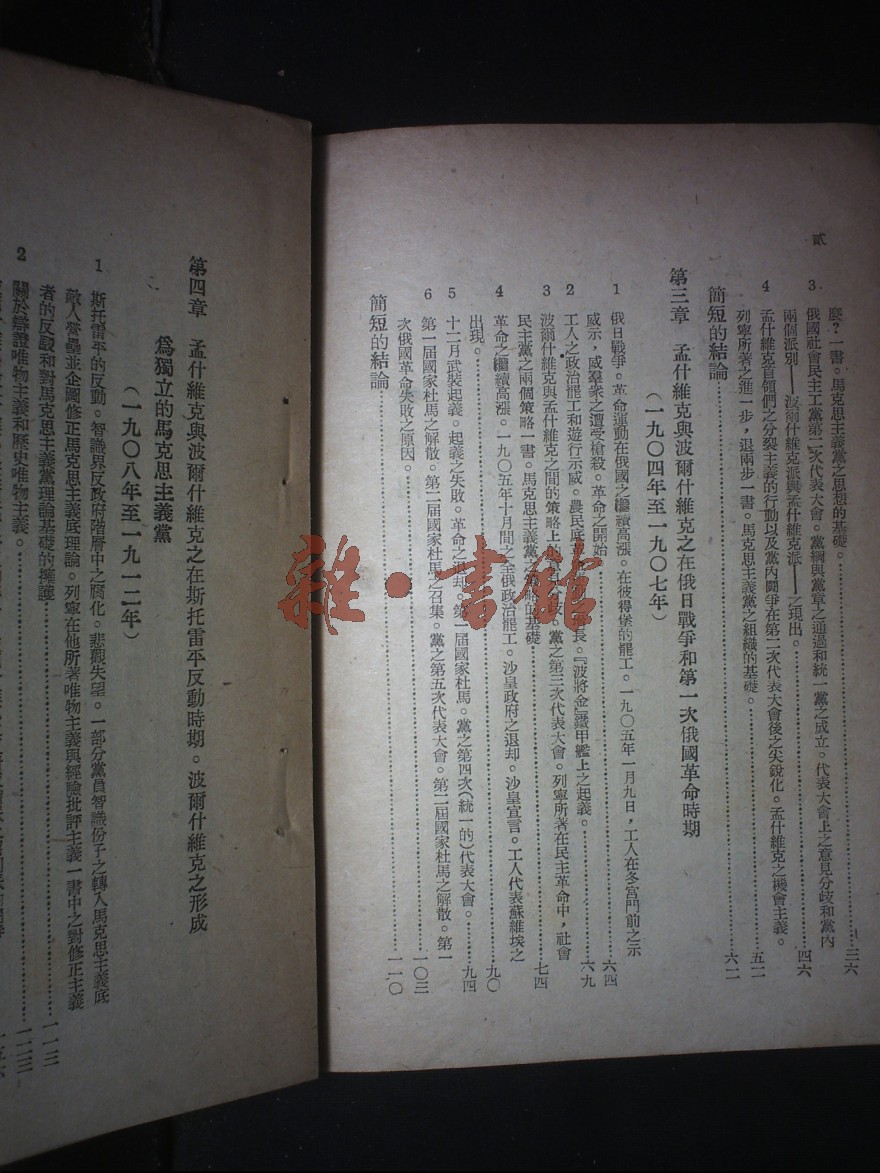 貳
麼?一書。馬克思主義黨之思想的基礎。……三六
3 俄國社會民主工黨第二次代表大會。黨綱與黨章之通過和統一黨之成立。代表大會上之意見分歧和黨內
兩個派別——波爾什維克派與孟什維克派——之現出。……四六
4 孟什維克首領們之分裂主義的行動以及黨內鬥爭在第二次代表大會後之尖銳化。孟什維克之機會主義。
列寧所著之進一步,退兩步一書。馬克思主義黨之組織的基礎。……五二
簡短的結論……六二
第三章 孟什維克與波爾什維克之在俄日戰爭和第一次俄國革命時期
(一九〇四年至一九〇七年)
1 俄日戰爭。革命運動在俄國之繼續高漲。在彼得堡的罷工。一九〇五年一月九日,工人在冬宮門前之示
威示,威羣衆之遭受槍殺。革命之開始……六四
2 工人之政治罷工和遊行示威。農民底革命運動之長。『波將金』鐵甲艦上之起義。……六九
3 波爾什維克與孟什維克之間的策略上的分歧。黨之第三次代表大會。列寧所著在民主革命中,社會
民主黨之兩個策略一書。馬克思主義黨之策略的基礎……七四
4 革命之繼續高漲。一九〇五年十月間之全俄政治罷工。沙皇政府之退却。沙皇宣言。工人代表蘇維埃之
出現。……九〇
5 十二月武裝起義。起義之失敗。革命之退却。第一屆國家杜馬。黨之第四次(統一的)代表大會。……九四
6 第一屆國家杜馬之解散。第二屆國家杜馬之召集。黨之第五次代表大會。第二屆國家杜馬之解散。第一
次俄國革命失敗之原因。……一〇三
簡短的結論……一一〇
第四章 孟什維克與波爾什維克之在斯托雷平反動時期。波爾什維克之形成
爲獨立的馬克思主義黨
(一九〇八年至一九一二年)
1 斯托雷平的反動。智識界反政府階層中之腐化。悲觀失望。一部分黨員智識份子之轉入馬克思主義底
敵人營壘並企圖修正馬克思主義底理論。列寧在他所著唯物主義與經驗批評主義一書中之對修正主義
者的反駁和對馬克思主義黨理論基礎的擁護……一一三
2 關於辯證唯物主義和歷史唯物主義。……一二三
雜·書館